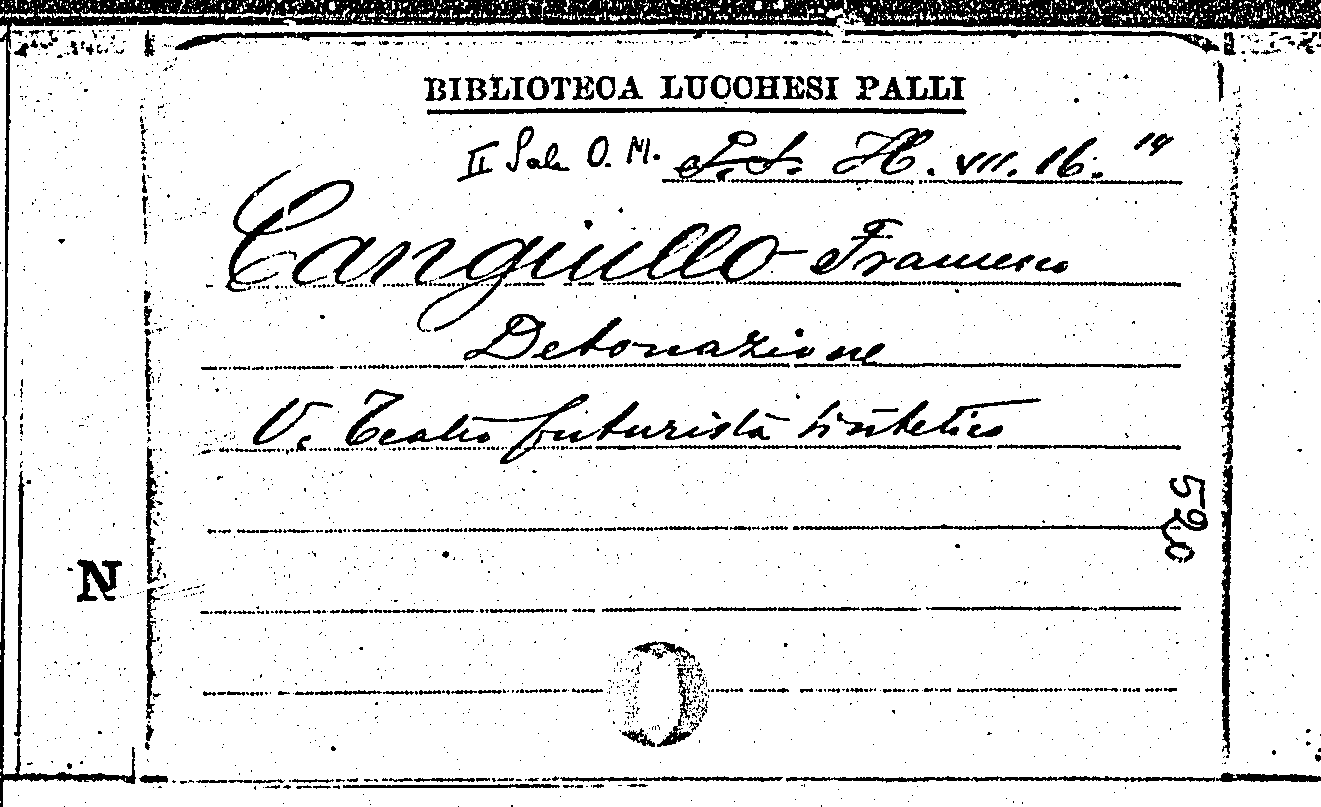 BIBLIOTECA LUCCHESI PALLI
II Sala O. M. S.S. H. VII. 16. 19
Cangiullo Francesco
Detonazione
V. Teatro futurista sintetico
520
N